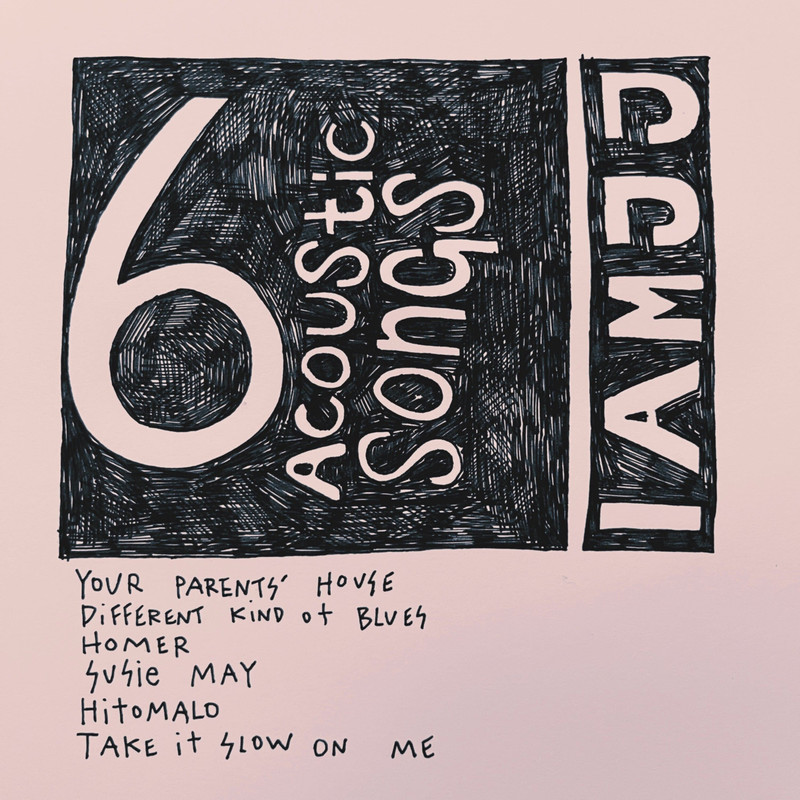 6
Acoustic
Songs
I AM
YOUR PARENTS' HOUSE
DiFFERENT KIND of BLUES
HOMER
SUSie MAY
HitoMALO
TAKE it SLOW ON ME